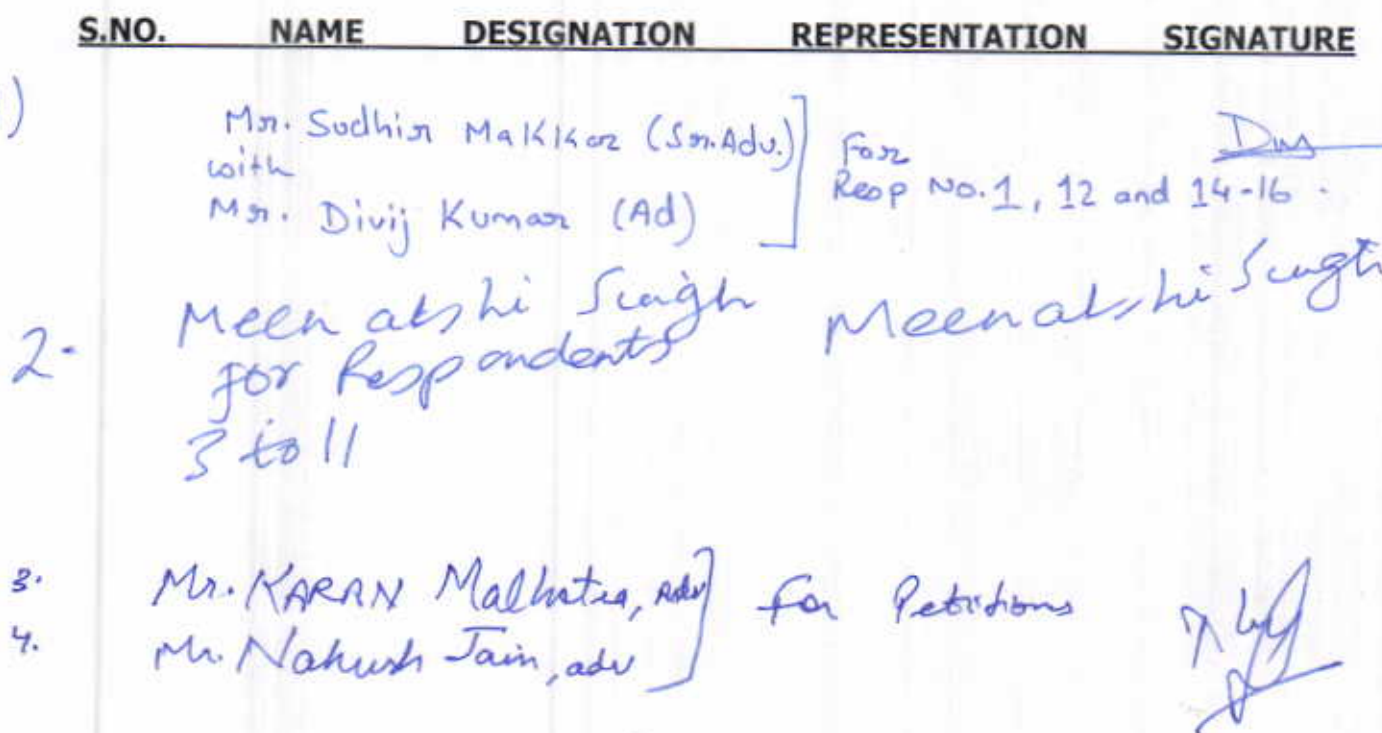 S.NO. NAME DESIGNATION REPRESENTATION SIGNATURE
)
Mr. Sudhir Makkar (Sr. Adv.)
with
Mr. Divij Kumar (Ad)
For
Resp No. 1, 12 and 14-16.
2- Meenakshi Singh
for Respondents
3 to 11
Meenakshi Singh
3. Mr. KARAN Malhotra, Adv
4. Mr. Nakush Jain, adv
for Petitions